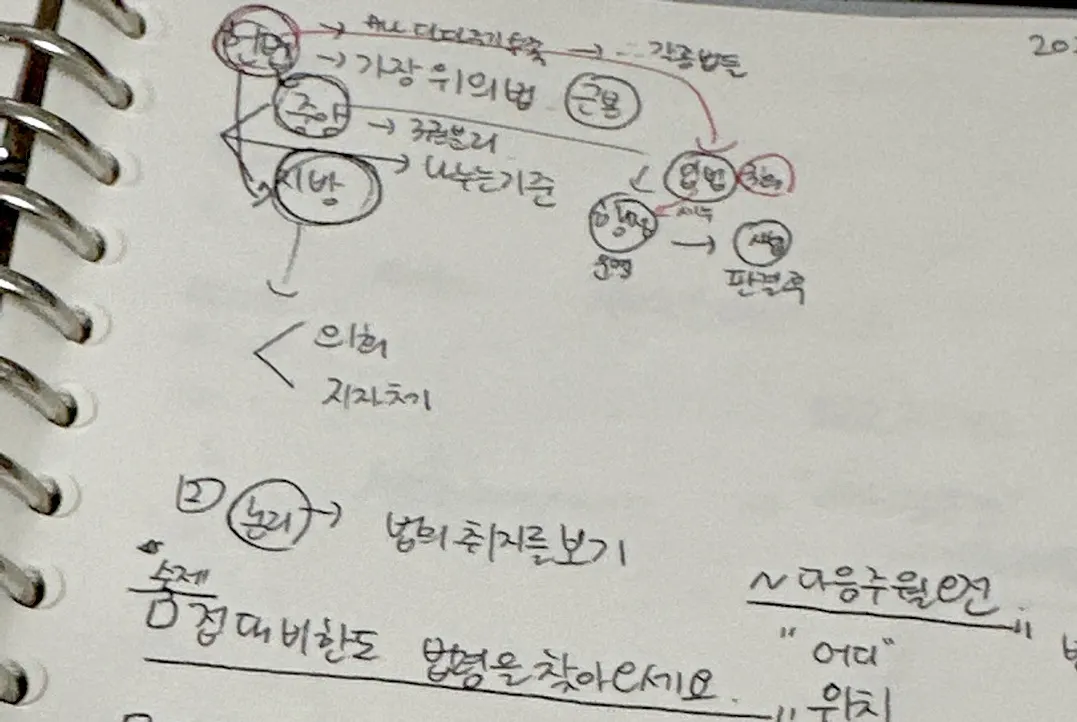 헌법 → ALL → 각종법들
→ 가장 위의 법 근본
중앙 → 3권분리
지방 → 나누는기준
입법 국회
행정
→ 사법
판결후
의회
지자체
② 논리 → 법의 취지를 보기
숙제
접대비한도 법령을 찾아오세요.
~ 다음주월요건
"어디"
위치